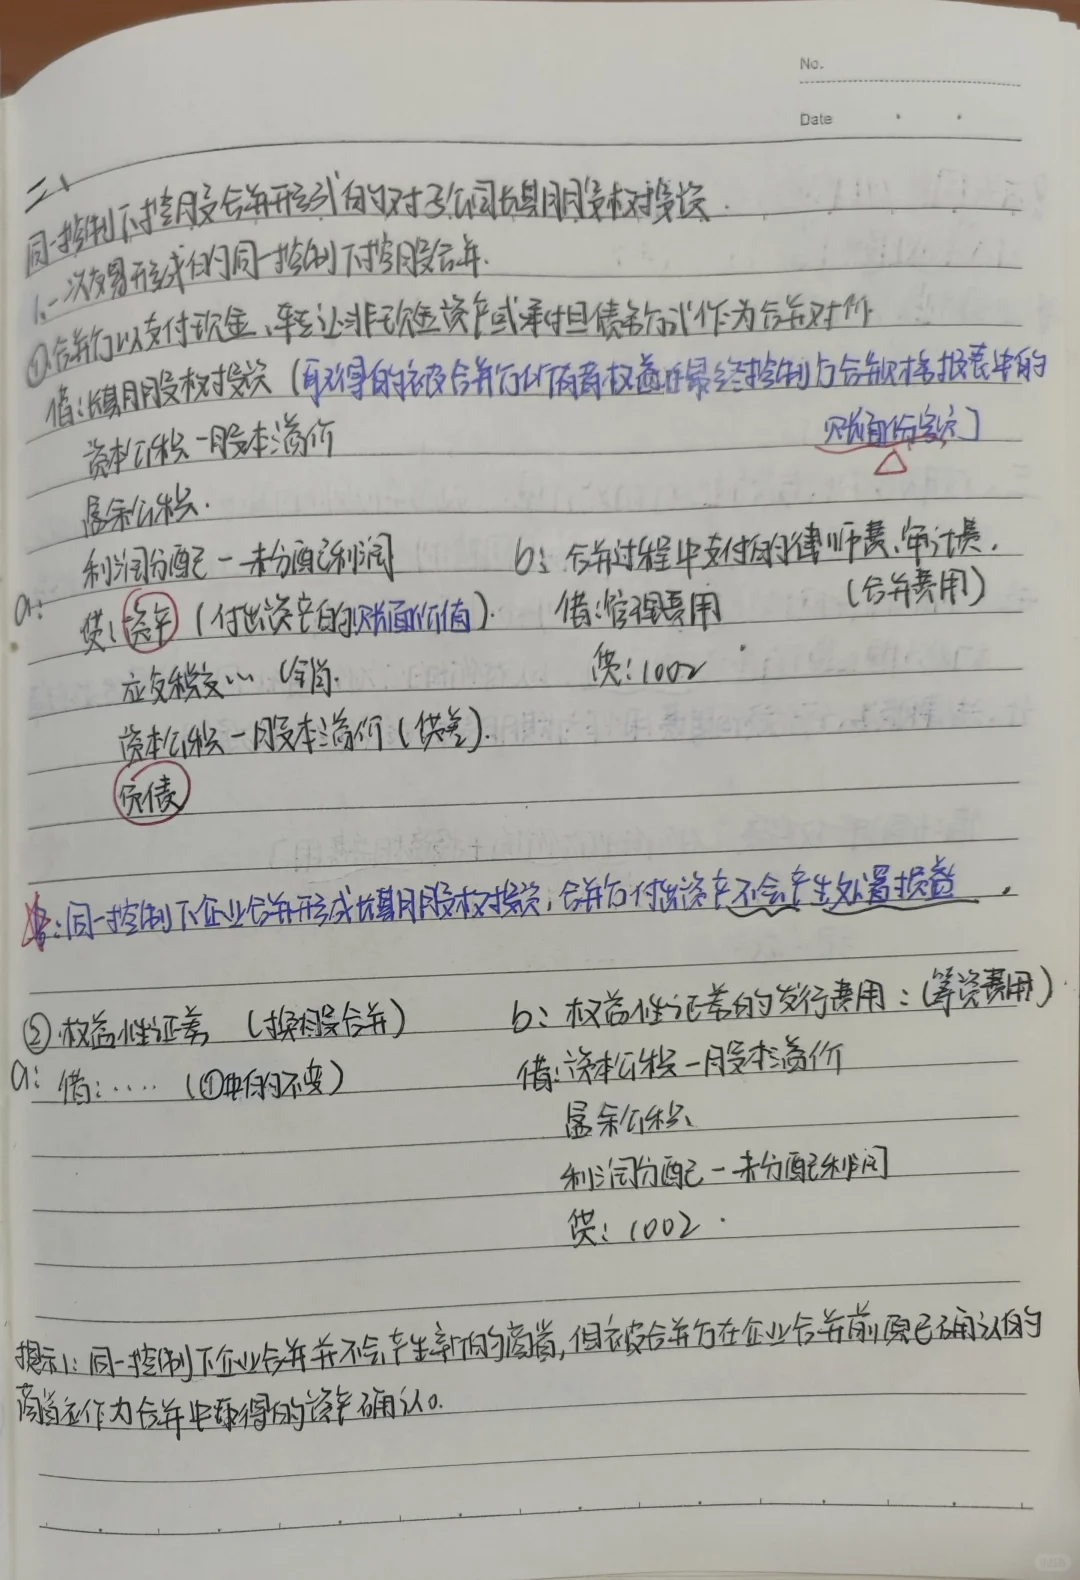 No.
Date
二、
同一控制下控股合并形式的对子公司长期股权投资.
1.一次交易形成的同一控制下控股合并.
①合并方以支付现金、转让非现金资产或承担债务方式作为合并对价
借:长期股权投资(取得的被合并方所有者权益在最终控制方合并财务报表中的
账面份额)
资本公积一股本溢价
盈余公积.
利润分配一未分配利润
a:
贷:资产(付出资产的账面价值).
应交税费… (销.
资本公积一股本溢价(贷差).
负债
b:合并过程中支付的律师费、审计费.
(合并费用)
借:管理费用
贷:1002
:同一控制下企业合并形成长期股权投资,合并方付出资产不会产生处置损益.
②.权益性证券 (换股合并)
a: 借:…… (①中的不变)
b:权益性证券的发行费用:(筹资费用)
借:资本公积一股本溢价
盈余公积、
利润分配一未分配利润
贷:1002.
提示1:同一控制下企业合并并不会产生新的商誉,但被合并方在企业合并前原已确认的
商誉应作为合并中取得的资产确认。